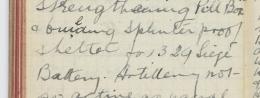 strengthening Pill Box
& building Splinter proof
shelter for 329 Siege
Battery. Artillery not
so active as usual